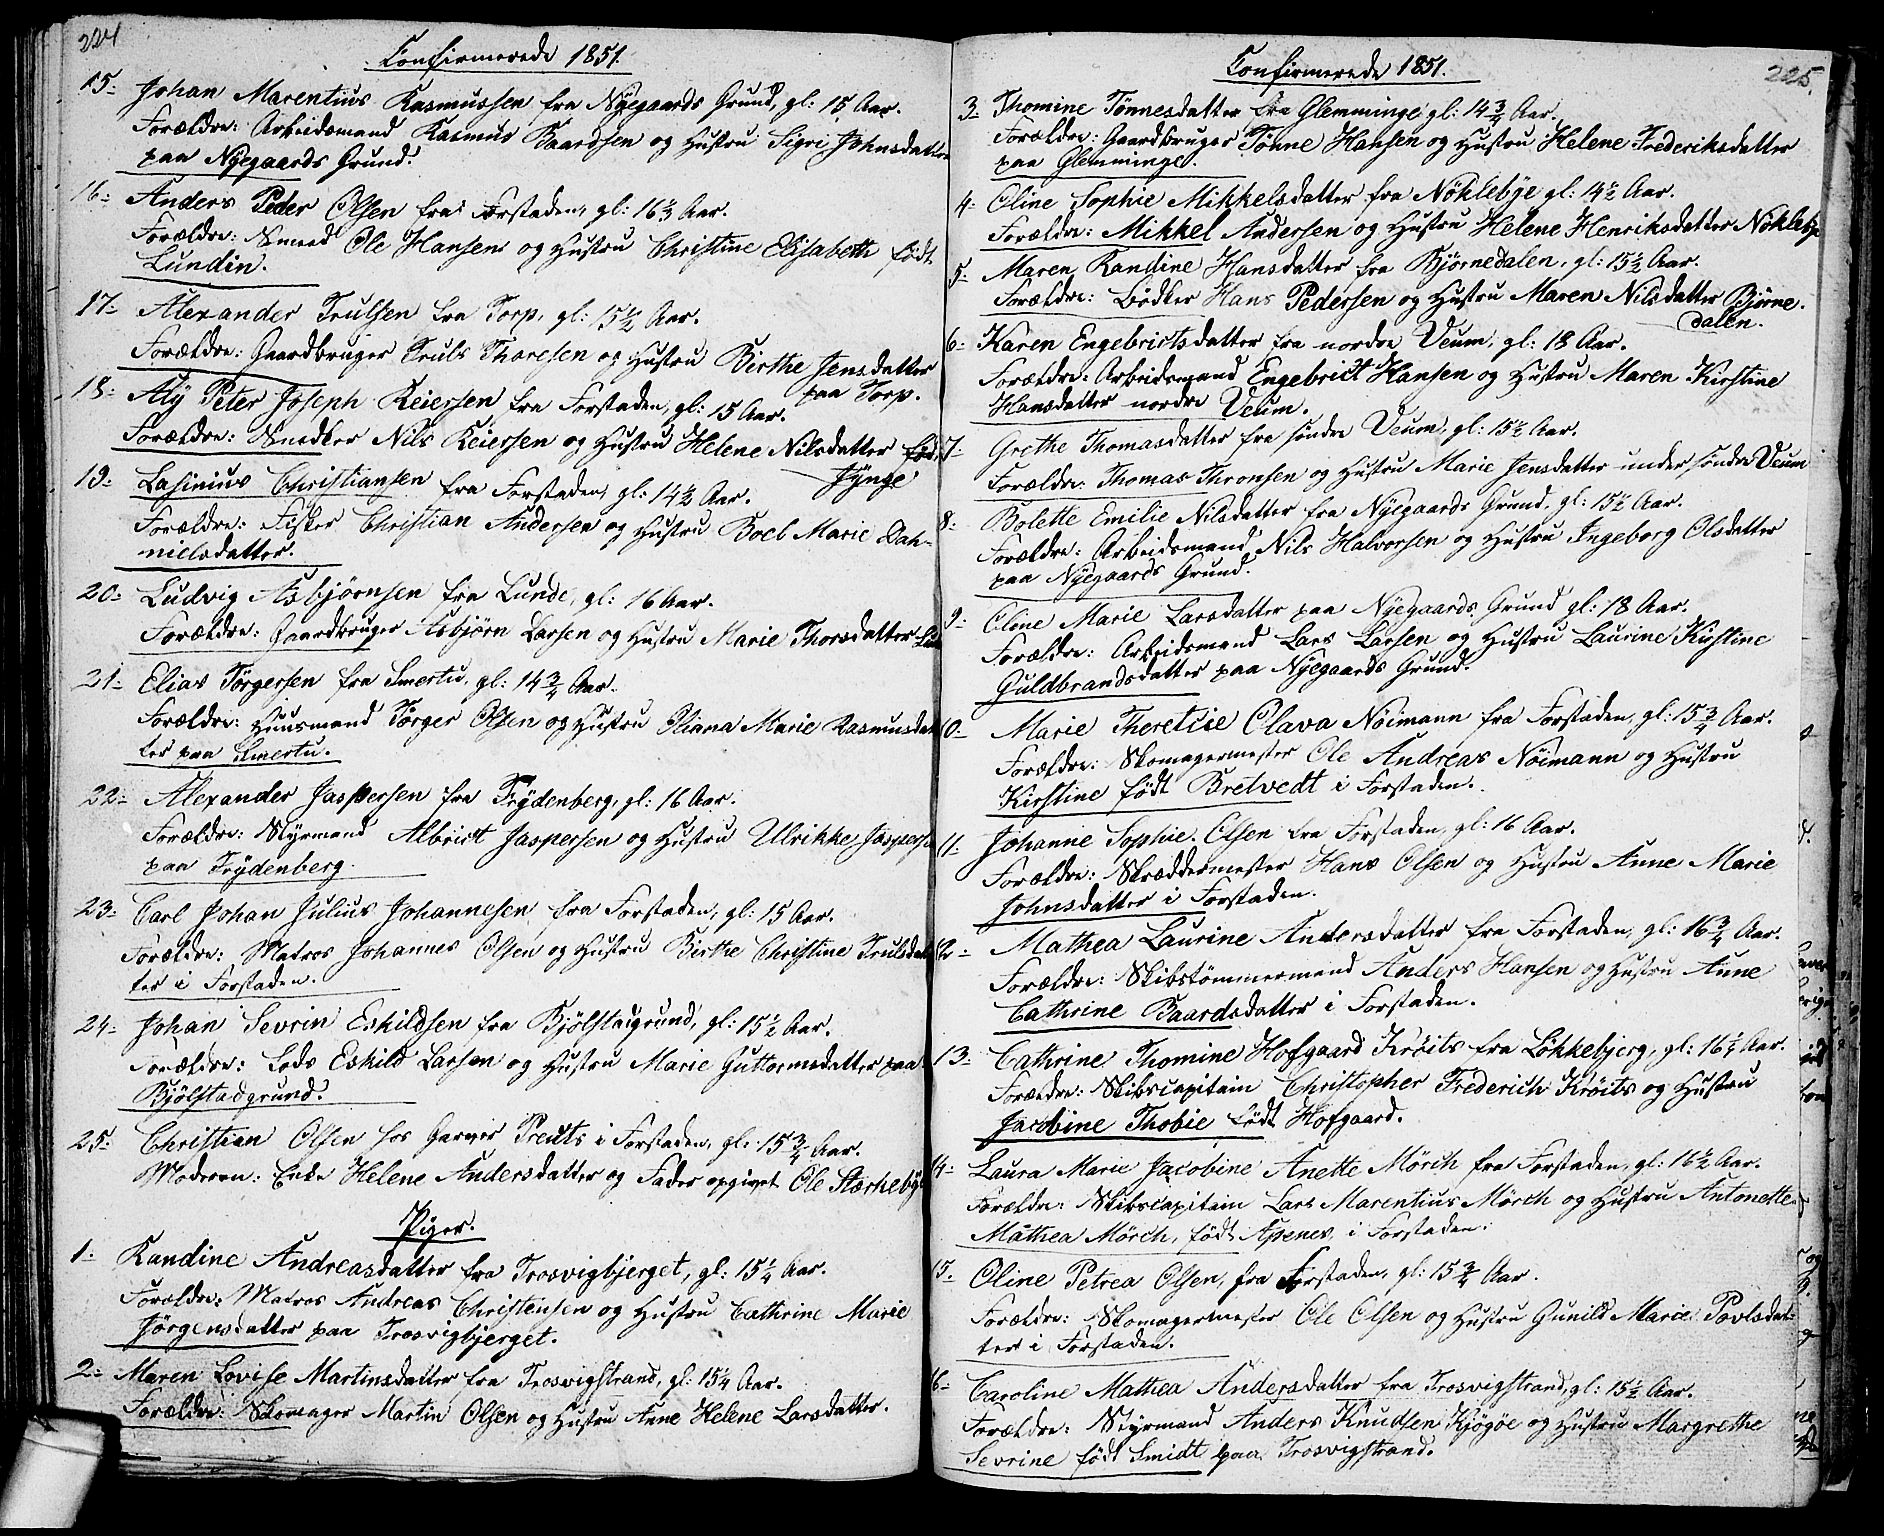 224
Confirmerede 1851.
15. Johan Marentius Rasmussen fra Nyegaards Grund, gl: 15 Aar.
Forældre: Arbeidsmand Rasmus Baardsen og Hustru Sigri Johnsdatter
paa Nyegaards Grund.
16. Anders Peder Olsen fra Forstaden, gl: 16 3/4 Aar.
Forældre: Smeed Ole Hansen og Hustru Christine Elisabeth født
Lundin.
17. Alexander Trulsen fra Torp, gl: 15 1/2 Aar.
Forældre: Gaardbruger Truls Thoresen og Hustru Birthe Jensdatter
paa Torp.
18. Aly Peter Joseph Reiersen fra Forstaden, gl: 15 Aar.
Forældre: Snedker Nils Reiersen og Hustru Helene Nilsdatter fød
Jynge
19. Lasinius Christiansen fra Forstaden, gl: 14 1/2 Aar.
Forældre: Fisker Christian Andersen og Hustru Boel Marie Dah-
nielsdatter.
20. Ludvig Asbjørnsen fra Lunde, gl: 16 Aar.
Forældre: Gaardbruger Asbjørn Larsen og Hustru Marie Thorsdatter
21. Elias Torgersen fra Smertu, gl: 14 3/4 Aar.
Forældre: Huusmand Torger Olsen og Hustru Oliana Marie Rasmusdat
ter paa Smertu.
22. Alexander Jaspersen fra Frydenberg, gl: 16 Aar.
Forældre: Styrmand Albrict Jaspersen og Hustru Ulrikke Jaspersen
paa Frydenberg.
23. Carl Johan Julius Johannesen, fra Forstaden, gl: 15 Aar.
Forældre: Matros Johannes Olsen og Hustru Birthe Christine Trulsdat
ter i Forstaden.
24. Johan Sevrin Eskildsen fra Bjölstadgrund, gl: 15 1/2 Aar.
Forældre: Lods Eskild Larsen og Hustru Marie Guttormsdatter paa
Bjölstadgrund.
25. Christian Olsen hos Garver Preuts i Forstaden, gl: 15 3/4 Aar.
Moderen: Enke Helene Andersdatter og Fader opgivet Ole Stærkeby
Piger.
1. Randine Andreasdatter fra Trosvigbjerget, gl: 15 1/4 Aar.
Forældre: Matros Andreas Christensen og Hustru Cathrine Marie
Jörgensdatter paa Trosvigbjerget.
2. Maren Lovise Martinsdatter fra Trosvigstrand, gl: 15 1/4 Aar.
Forældre: Skomager Martin Olsen og Hustru Anne Helene Larsdatter.
225.
Confirmerede 1851.
3. Thomine Tönnesdatter fra Glemminge gl: 14 3/4 Aar.
Forældre: Gaardbruger Tönne Hansen og Hustru Helene Frederiksdatter
paa Glemminge.
4. Oline Sophie Mikkelsdatter fra Nöklebye gl: 14 1/2 Aar.
Forældre: Mikkel Andersen og Hustru Helene Henriksdatter Nöklebye
5. Maren Randine Hansdatter fra Bjørnedalen, gl: 15 1/2 Aar.
Forældre: Bødker Hans Pedersen og Hustru Maren Nilsdatter Bjørne-
dalen.
6. Karen Engebrictsdatter fra nordre Veum, gl: 18 Aar.
Forældre: Arbeidsmand Engebrict Hansen og Hustru Maren Kirstine
Hansdatter nordre Veum.
7. Grethe Thomasdatter fra søndre Veum, gl: 15 1/2 Aar.
Forældre: Thomas Thronsen og Hustru Marie Jensdatter under søndre Veum
8. Bolette Emilie Nilsdatter fra Nyegaards Grund, gl: 15 1/2 Aar.
Forældre: Arbeidsmand Nils Halvorsen og Hustru Ingeborg Olsdatter
paa Nyegaards Grund.
9. Oline Marie Larsdatter paa Nyegaards Grund gl: 18 Aar.
Forældre: Arbeidsmand Lars Larsen og Hustru Laurine Kirstine
Guldbrandsdatter paa Nyegaards Grund.
10. Marie Theretcie Olava Nöimann fra Forstaden, gl: 15 3/4 Aar.
Forældre: Skomagermester Ole Andreas Nöimann og Hustru
Kirstine født Bretvedt i Forstaden.
11. Johanne Sophie Olsen fra Forstaden, gl: 16 Aar.
Forældre: Skræddermester Hans Olsen og Hustru Anne Marie
Johnsdatter i Forstaden.
12. Mathea Laurine Andersdatter fra Forstaden, gl: 16 3/4 Aar.
Forældre: Skibstömmermand Anders Hansen og Hustru Anne
Cathrine Baardsdatter i Forstaden.
13. Cathrine Thomine Hofgaard Kröits fra Lökkebjerg, gl: 16 1/4 Aar.
Forældre: Skibscapitain Christopher Frederich Kröits og Hustru
Jacobine Thobie født Hofgaard.
14. Laura Marie Jacobine Anette Mörch fra Forstaden, gl: 16 1/2 Aar.
Forældre: Skibscapitain Lars Marentius Mörch og Hustru Antonette
Mathea Mörch, født Apenes, i Forstaden.
15. Oline Petrea Olsen, fra Forstaden, gl: 15 3/4 Aar.
Forældre: Skomagermester Ole Olsen og Hustru Gunild Marie Povlsdat-
ter i Forstaden.
16. Caroline Mathea Andersdatter fra Trosvigstrand, gl: 15 1/2 Aar.
Forældre: Styrmand Anders Knudsen Kjögöe og Hustru Margrethe
Sevrine født Smidt paa Trosvigstrand.